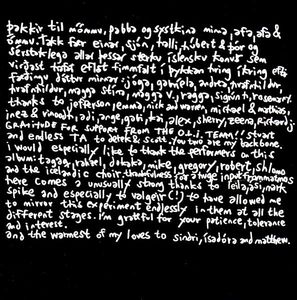 þakkir til mömmu, pabba og systkina minna, afa, afa &
ömmu. Takk fær einar, sjón, talli, húbert & þór og
sérstaklega allar þessar sterku íslensku konur sem
virðast tafat eflst fimmfalt í þykkan hring í kring eftir
fæðingu dóttur minnar: jóga, gabriela, andrea, hrafnhildur,
hrafnhildur, magga stína, magga v, ragga, sigrún & rosemary.
thanks to jefferson, emma, nick and warren, michael & mathias,
inez & vinoodh, adi, ange, gabi, kai, alex, sherry, zeena, Richard,
GRATITUDE FOR SUPPORT FROM THE O.L.I. TEAM!! Stuart
and endless TA to derek & scott. you two are my backbone.
i would especially like to thank the performers on this
album: tagaq, rahzel, dokaka, mike, gregory, robert, shlomo
and the icelandic choir. thankfulness for a huge input from matmos;
here comes a unusually strong thanks to leila, ásí, nark
spike and especially to valgeir (!) to have allowed me
to mirror this experiment endlessly in them at all the
different stages. i'm grateful for your patience, tolerance
and interest.
and the warmest of my loves to sindri, ísadóra and matthew.